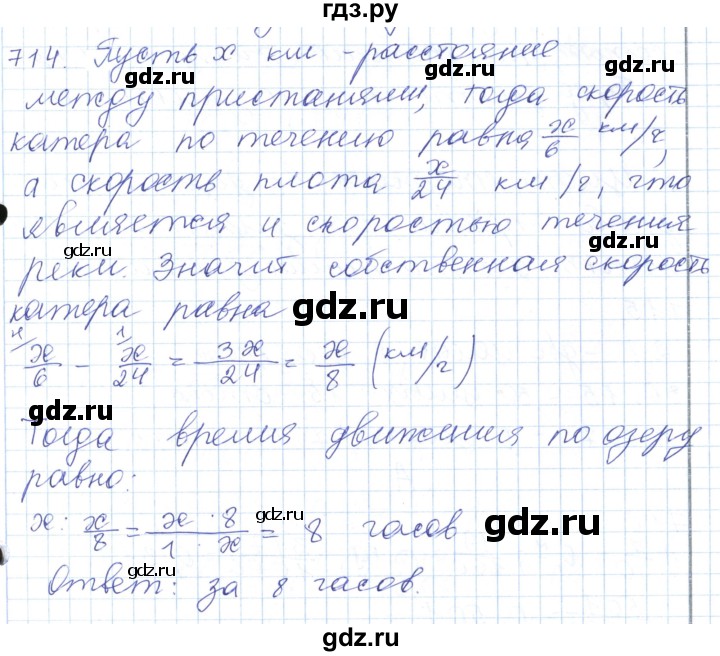 гдз.ру
714. Пусть x км - расстояние
gdz.ru gdz.ru
между пристанями, тогда скорость
gdz.ru gdz.ru
катера по течению равна x/6 км/ч,
а скорость плота x/24 км/ч, что
является и скоростью течения
gdz.ru gdz.ru
реки. Значит собственная скорость
катера равна gdz.ru
4 1
x/6 - x/24 = 3x/24 = x/8 (км/ч)
gdz.ru
Тогда время движения по озеру
gdz.ru
равно:
x : x/8 = x · 8/1 · x = 8 часов
gdz.ru gdz.ru
gdz.ru
Ответ: за 8 часов.
gdz.ru
gdz.ru